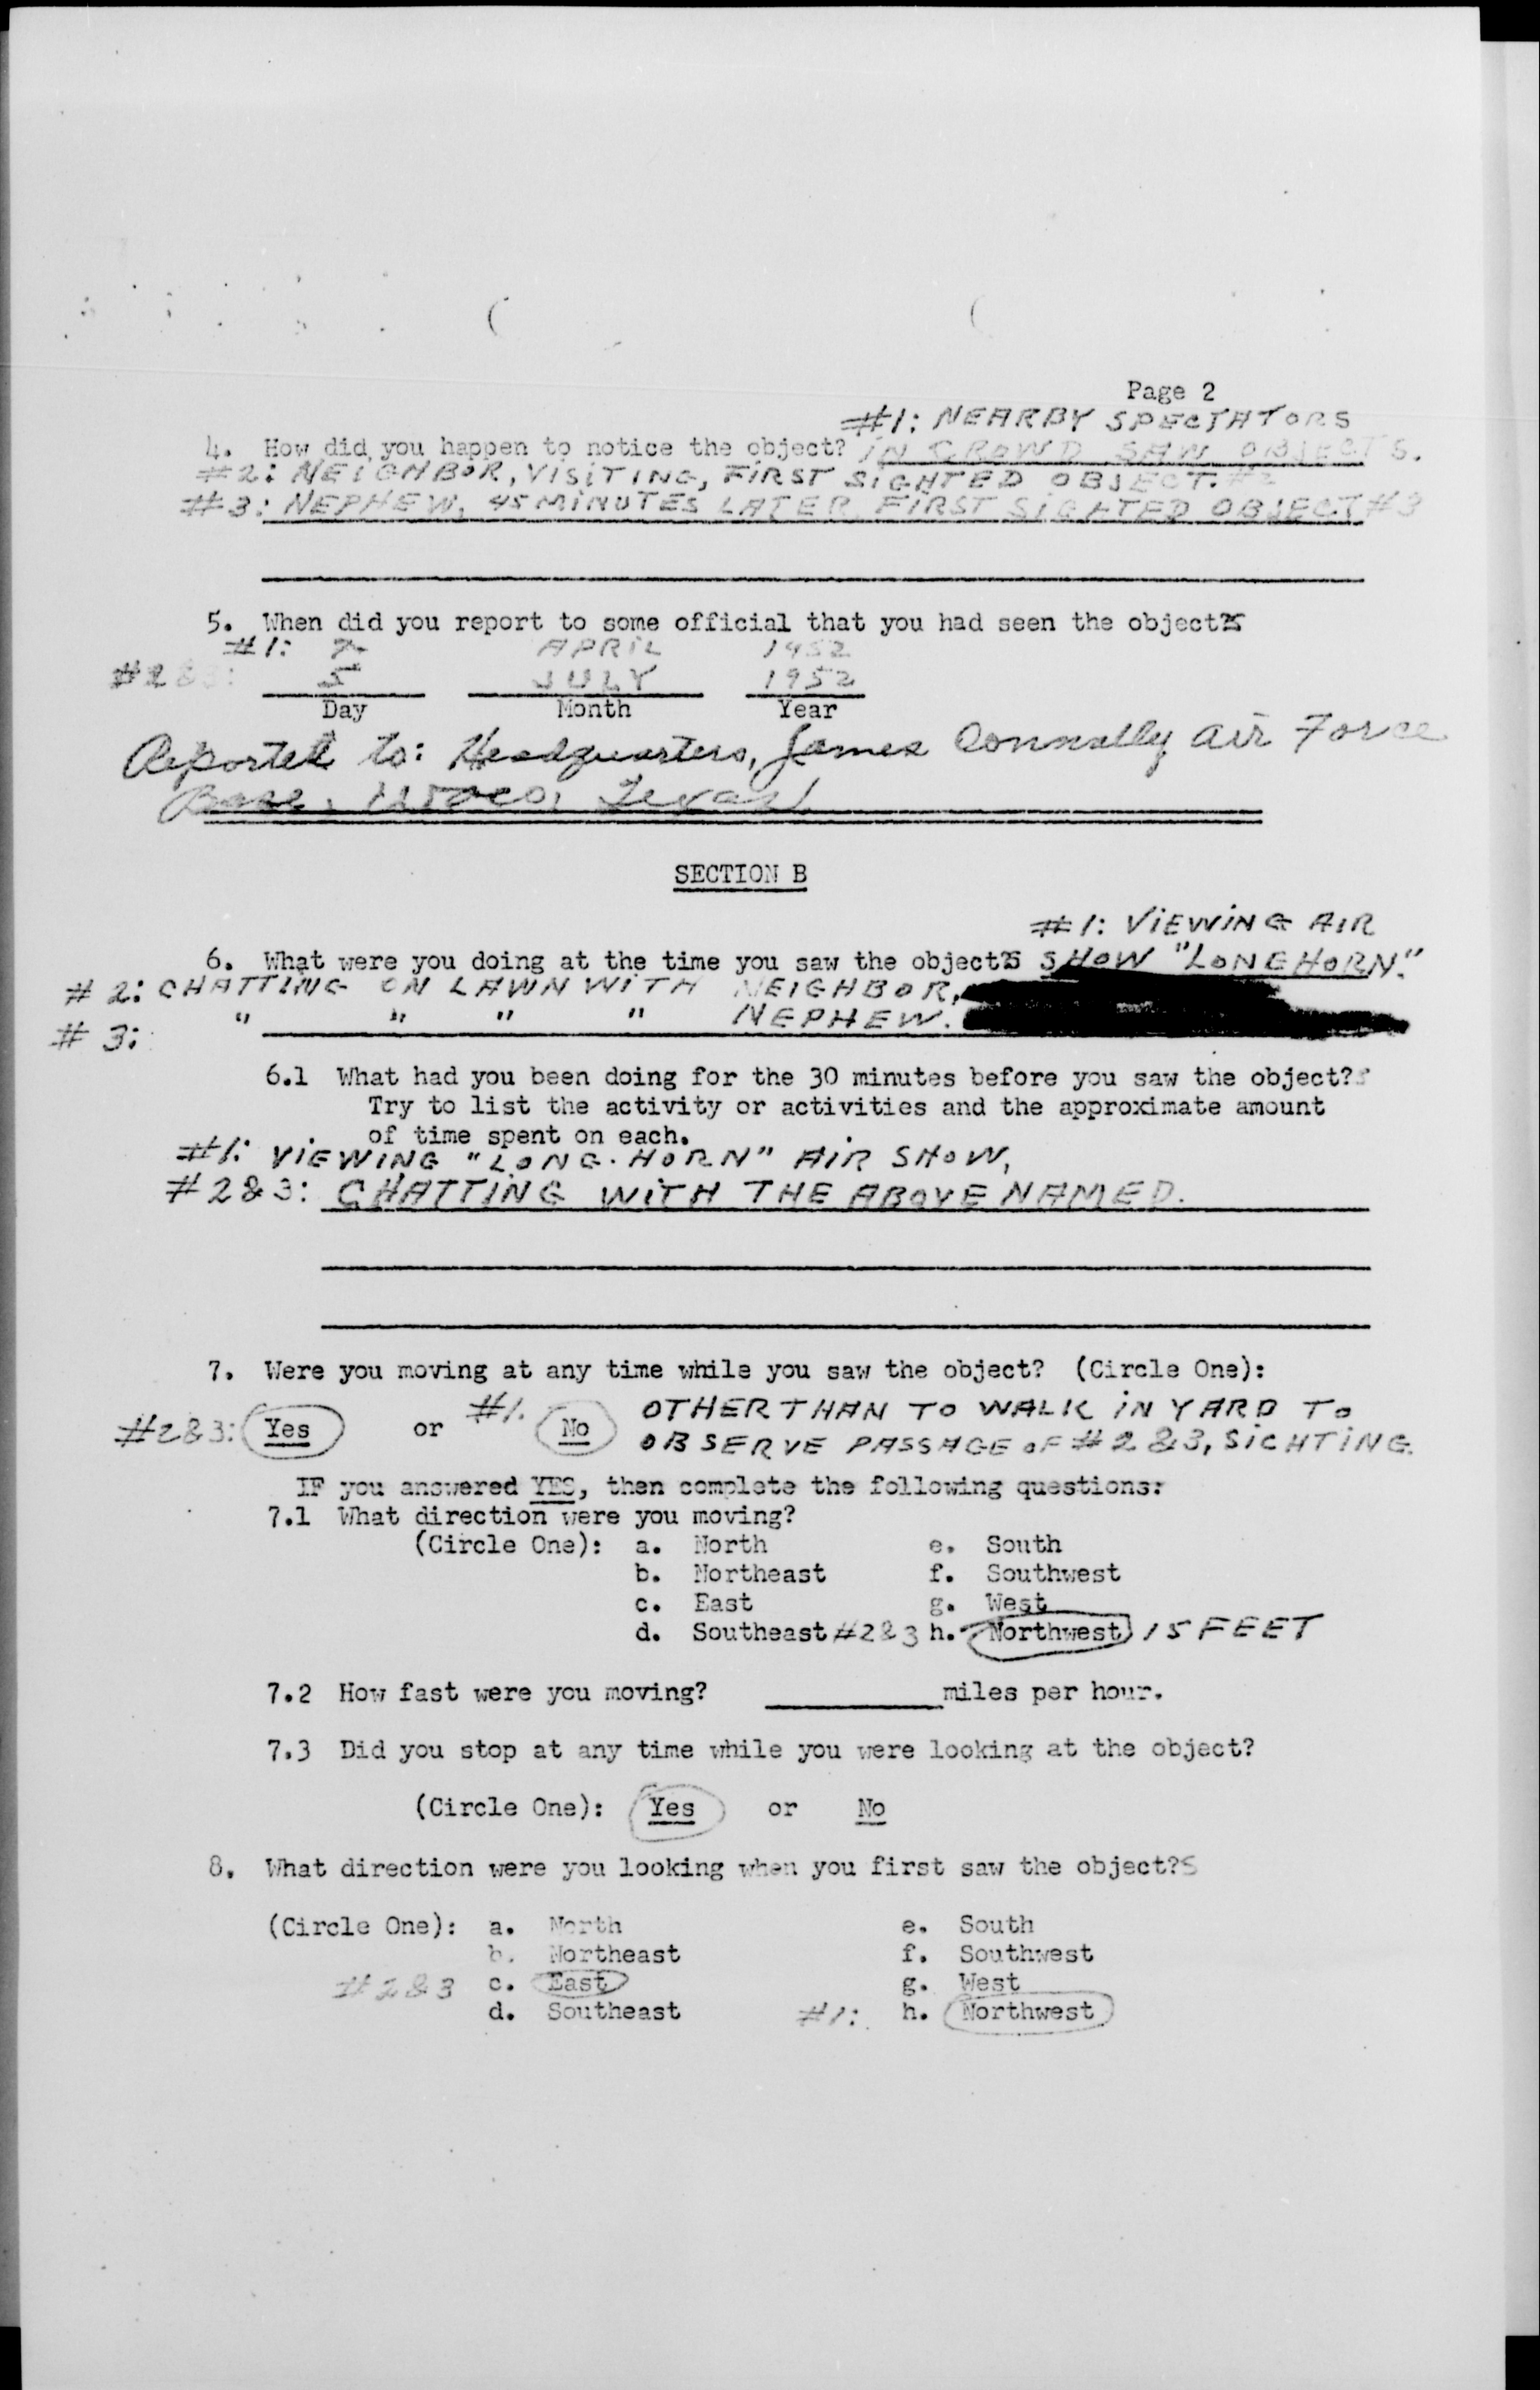 Page 2
#1: NEARBY SPECTATORS
4. How did you happen to notice the object? IN CROWD SAW OBJECTS.
#2: NEIGHBOR, VISITING, FIRST SIGHTED OBJECT. #2
#3: NEPHEW, 45 MINUTES LATER FIRST SIGHTED OBJECT #3
5. When did you report to some official that you had seen the objects
#1: 7 APRIL 1952
#2&3: 5 JULY 1952
Day Month Year
Reported to: Headquarters, James Connally Air Force
Base, Waco, Texas
SECTION B
#1: VIEWING AIR
6. What were you doing at the time you saw the objects SHOW "LONGHORN."
#2: CHATTING ON LAWN WITH NEIGHBOR,
#3: " " " " NEPHEW.
6.1 What had you been doing for the 30 minutes before you saw the object?s
Try to list the activity or activities and the approximate amount
of time spent on each.
#1: VIEWING "LONG-HORN" AIR SHOW,
#2&3: CHATTING WITH THE ABOVE NAMED.
7. Were you moving at any time while you saw the object? (Circle One):
#2&3: Yes or #1. No OTHER THAN TO WALK IN YARD TO
OBSERVE PASSAGE OF #2&3, SIGHTING.
IF you answered YES, then complete the following questions:
7.1 What direction were you moving?
(Circle One): a. North e. South
b. Northeast f. Southwest
c. East g. West
d. Southeast #2&3 h. Northwest 15 FEET
7.2 How fast were you moving? miles per hour.
7.3 Did you stop at any time while you were looking at the object?
(Circle One): Yes or No
8. What direction were you looking when you first saw the object?s
(Circle One): a. North e. South
b. Northeast f. Southwest
#2&3 c. East g. West
d. Southeast #1: h. Northwest